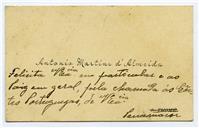 Antonio Martins d'Almeida
Felicita V. Exa em particular e ao
Paiz em geral, pela chamada ás Côr-
tes Portuguezas, de V. Exa
Penamacor